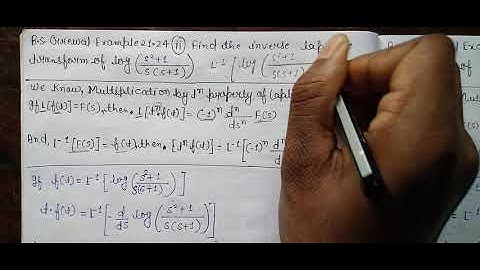 B.S. Grewal Example 21.24 (ii) Find the inverse lap
transform of log (s²+1 / s(s+1)) L⁻¹ [log (s²+1 / s(s+1)
We know, Multiplication by tⁿ property of
If L[f(t)] = F(s), then. L[tⁿf(t)] = (-1)ⁿ dⁿ/dsⁿ F(s)
And, L⁻¹[F(s)] = f(t), then. [tⁿf(t)] = L⁻¹[(-1)ⁿ dⁿ
If f(t) = L⁻¹ [log (s²+1 / s(s+1))]
t·f(t) = L⁻¹ [-d/ds log (s²+1 / s(s+1))]